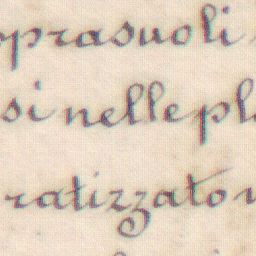 oprasuoli
si nelle pl
ratizzato